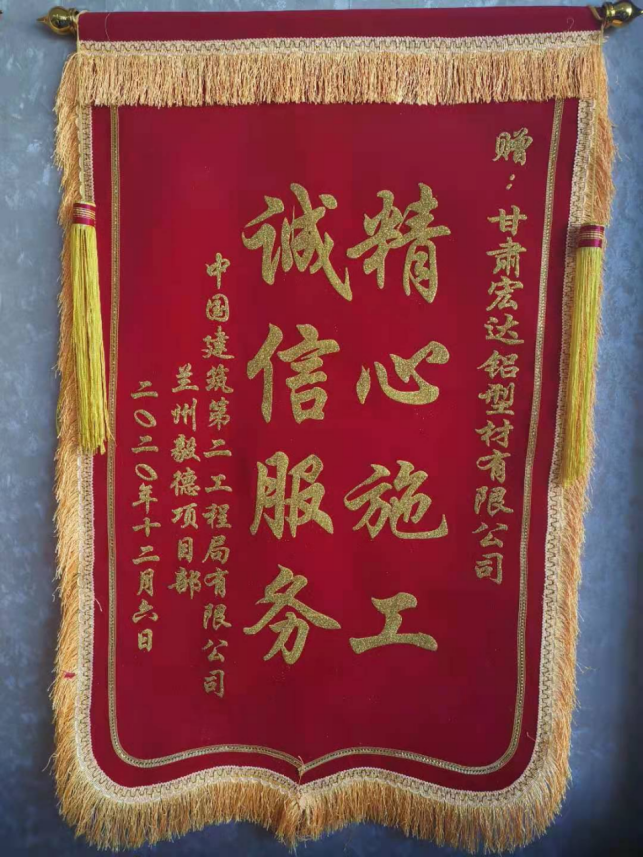 赠：甘肃宏达铝型材有限公司
精心施工
诚信服务
中国建筑第二工程局有限公司
兰州毅德项目部
二〇二〇年十二月六日